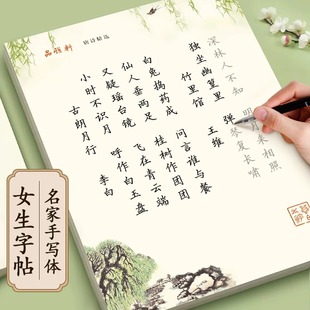 品雅轩
唐诗精选
深林人不知 明月来相照
独坐幽篁里 弹琴复长啸
竹里馆 王维
白兔捣药成 问言谁与餐
仙人垂两足 桂树作团团
又疑瑶台镜 飞在青云端
小时不识月 呼作白玉盘
古朗月行 李白
名家手写体
女生字帖